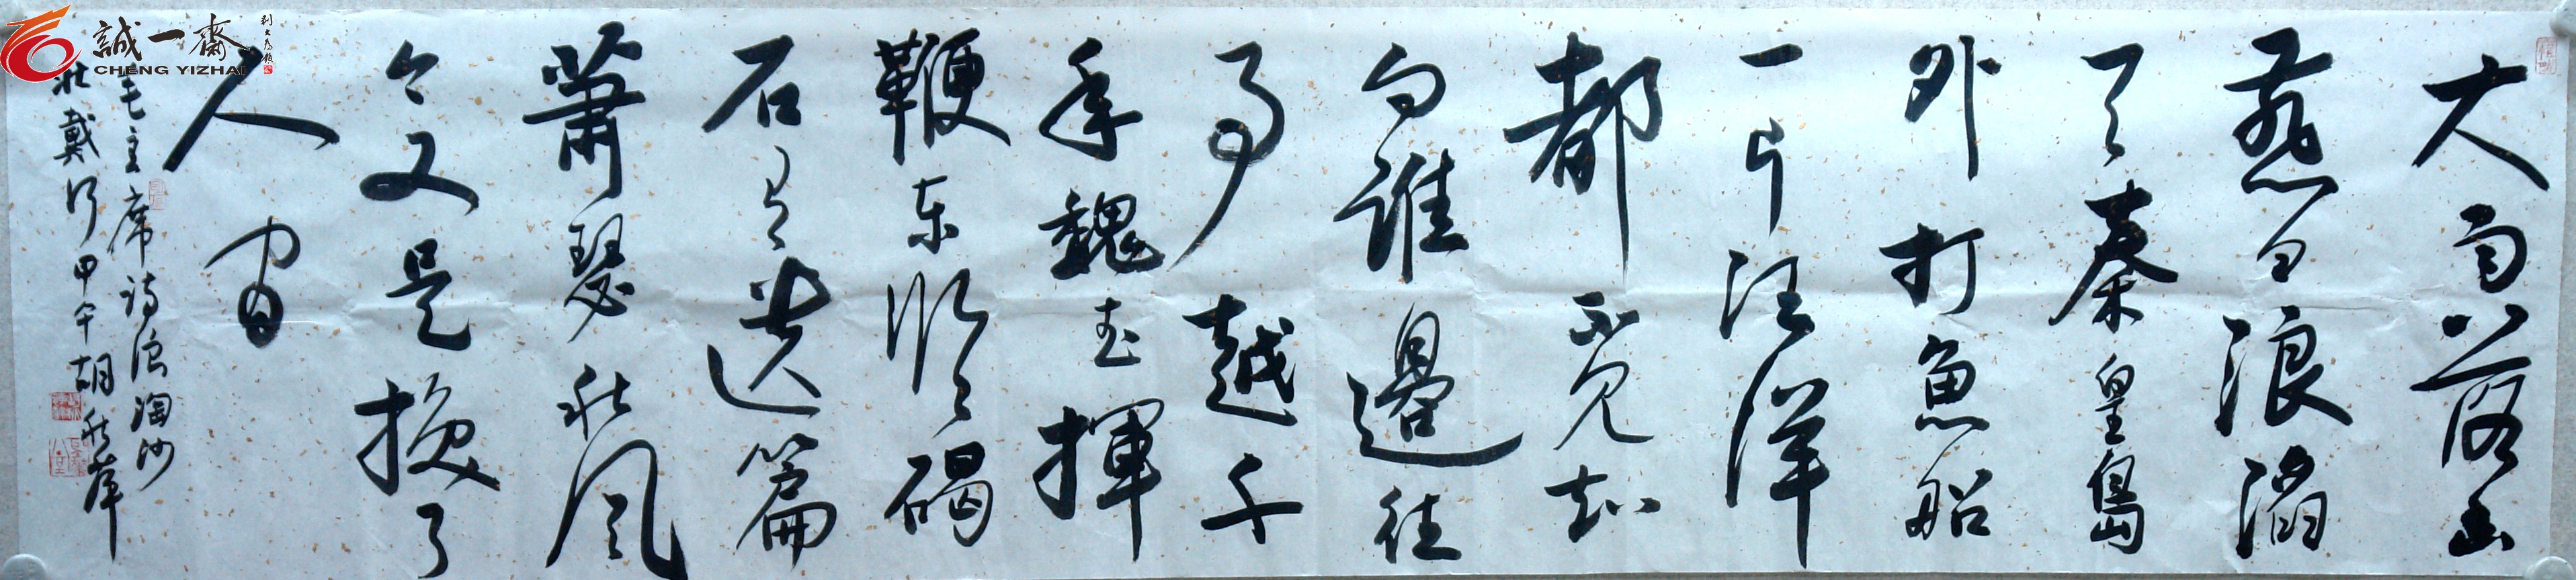 大雨落幽
燕白浪滔
天秦皇島
外打魚船
一片汪洋
都不見知
向誰邊往
事越千
年魏武揮
鞭东临碣
石有遗篇
蕭瑟秋风
今又是换了
人间
毛主席诗浪淘沙
北戴河甲午胡秋萍
誠一齋
CHENG YIZHAI